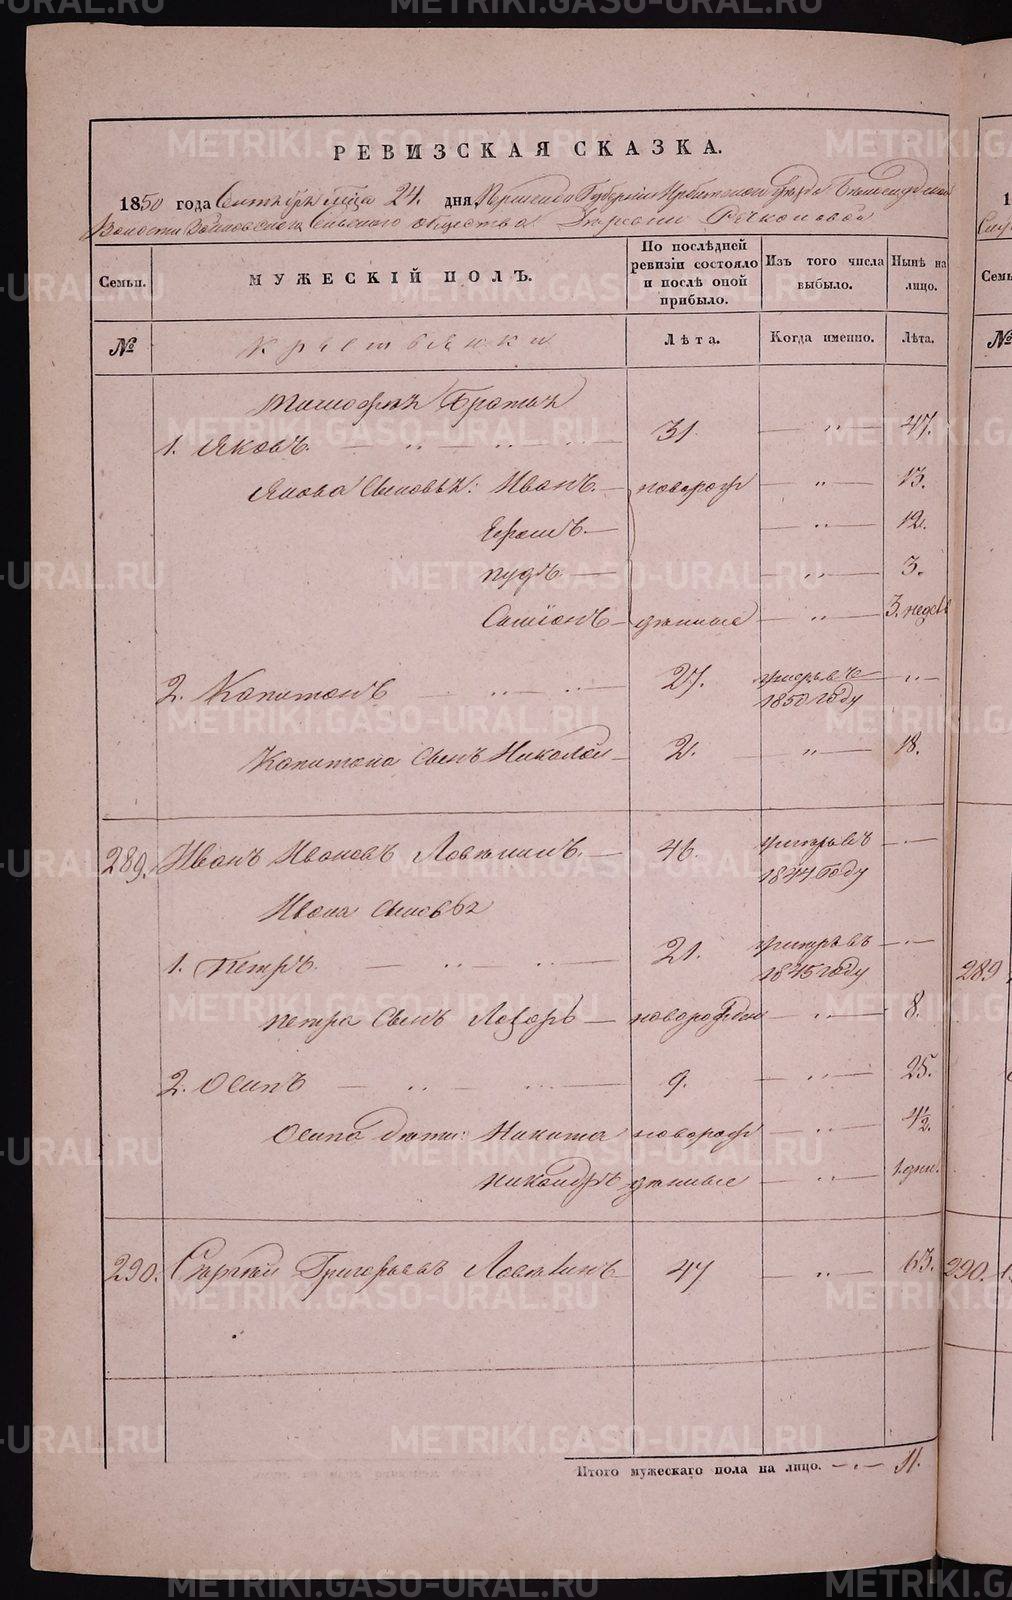 РЕВИЗСКАЯ СКАЗКА.
1850 года Сентября м҃ца 24. дня Пермской Губернии Ирбитского уезда
Волости Сельскаго общества Деревни Речкаловой
Семьи. МУЖЕСКІЙ ПОЛЪ. По послѣдней ревизіи состояло и послѣ оной прибыло. Изъ того числа выбыло. Нынѣ на лицо.
№ Крестьянки Лѣта. Когда именно. Лѣта.
Тимофея Братья
1. Яковъ. — „ „ — 31. — „ — 47.
Якова Сыновья: Иванъ. — новорож — „ — 13.
Ефимъ — — „ — 12.
Пудъ — — „ — 3.
Симіонъ — денные — „ — 3. недел
2. Капитонъ — „ „ — 27. умеръ въ 1850 году — „ —
Капитона Сынъ Николай — 2. — „ — 18.
289. Иванъ Ивановъ Ловкинъ. — 46. умеръ въ 1844 году — „ —
Ивана Сыновья
1. Петръ. — „ „ — 21. умеръ въ 1845 году — „ —
Петра Сынъ Лазарь — новорожден — „ — 8.
2. Осипъ — „ „ — 9. — „ — 25.
Осипа дети: Никита новорож — „ — 4½.
Никандръ денные — „ — 1. дни.
290. Сергей Григорьевъ Ловкинъ — 47 — „ — 63.
Итого мужескаго пола на лицо. — „ — 11.
289
290.
METRIKI.GASO-URAL.RU